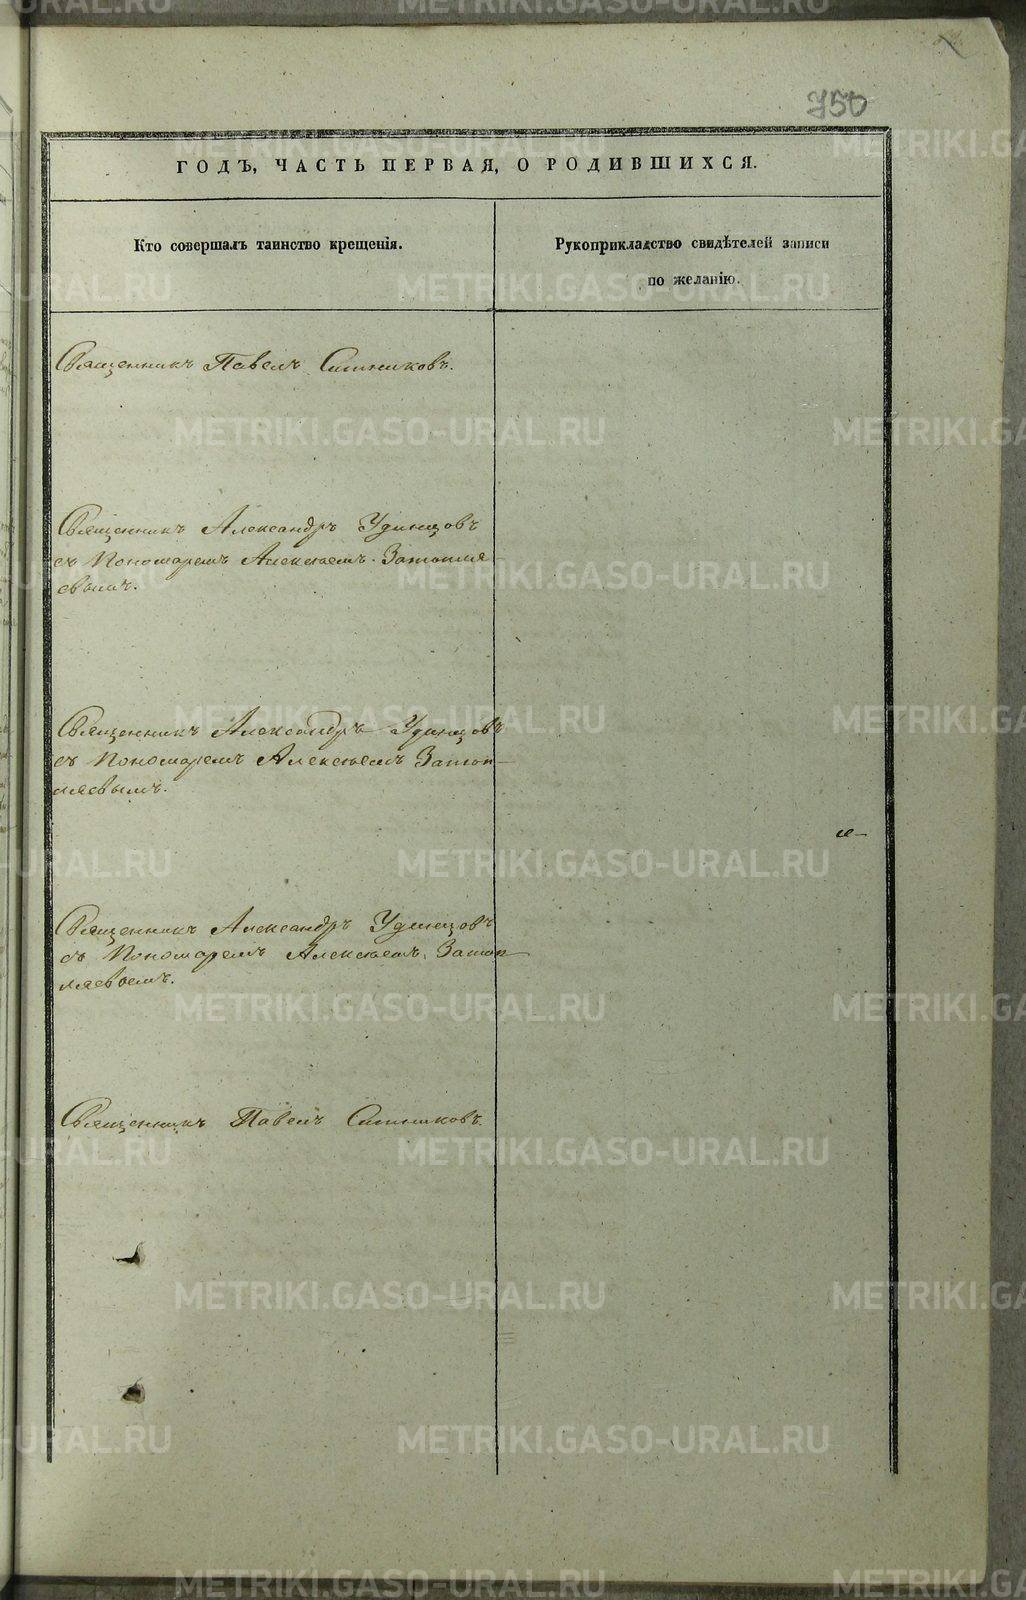 750
ГОДЪ, ЧАСТЬ ПЕРВАЯ, О РОДИВШИХСЯ.
Кто совершалъ таинство крещенія.
Рукоприкладство свидѣтелей записи
по желанію.
Священникъ Павелъ Ситниковъ.
Священникъ Александръ Удинцовъ
съ Пономаремъ Алексѣемъ Затопля-
евымъ.
Священникъ Александръ Удинцовъ
съ Пономаремъ Алексѣемъ Затоп-
ляевымъ.
Священникъ Александръ Удинцовъ
съ Пономаремъ Алексѣемъ Затоп-
ляевоемъ.
Священникъ Павелъ Ситниковъ.
METRIKI.GASO-URAL.RU